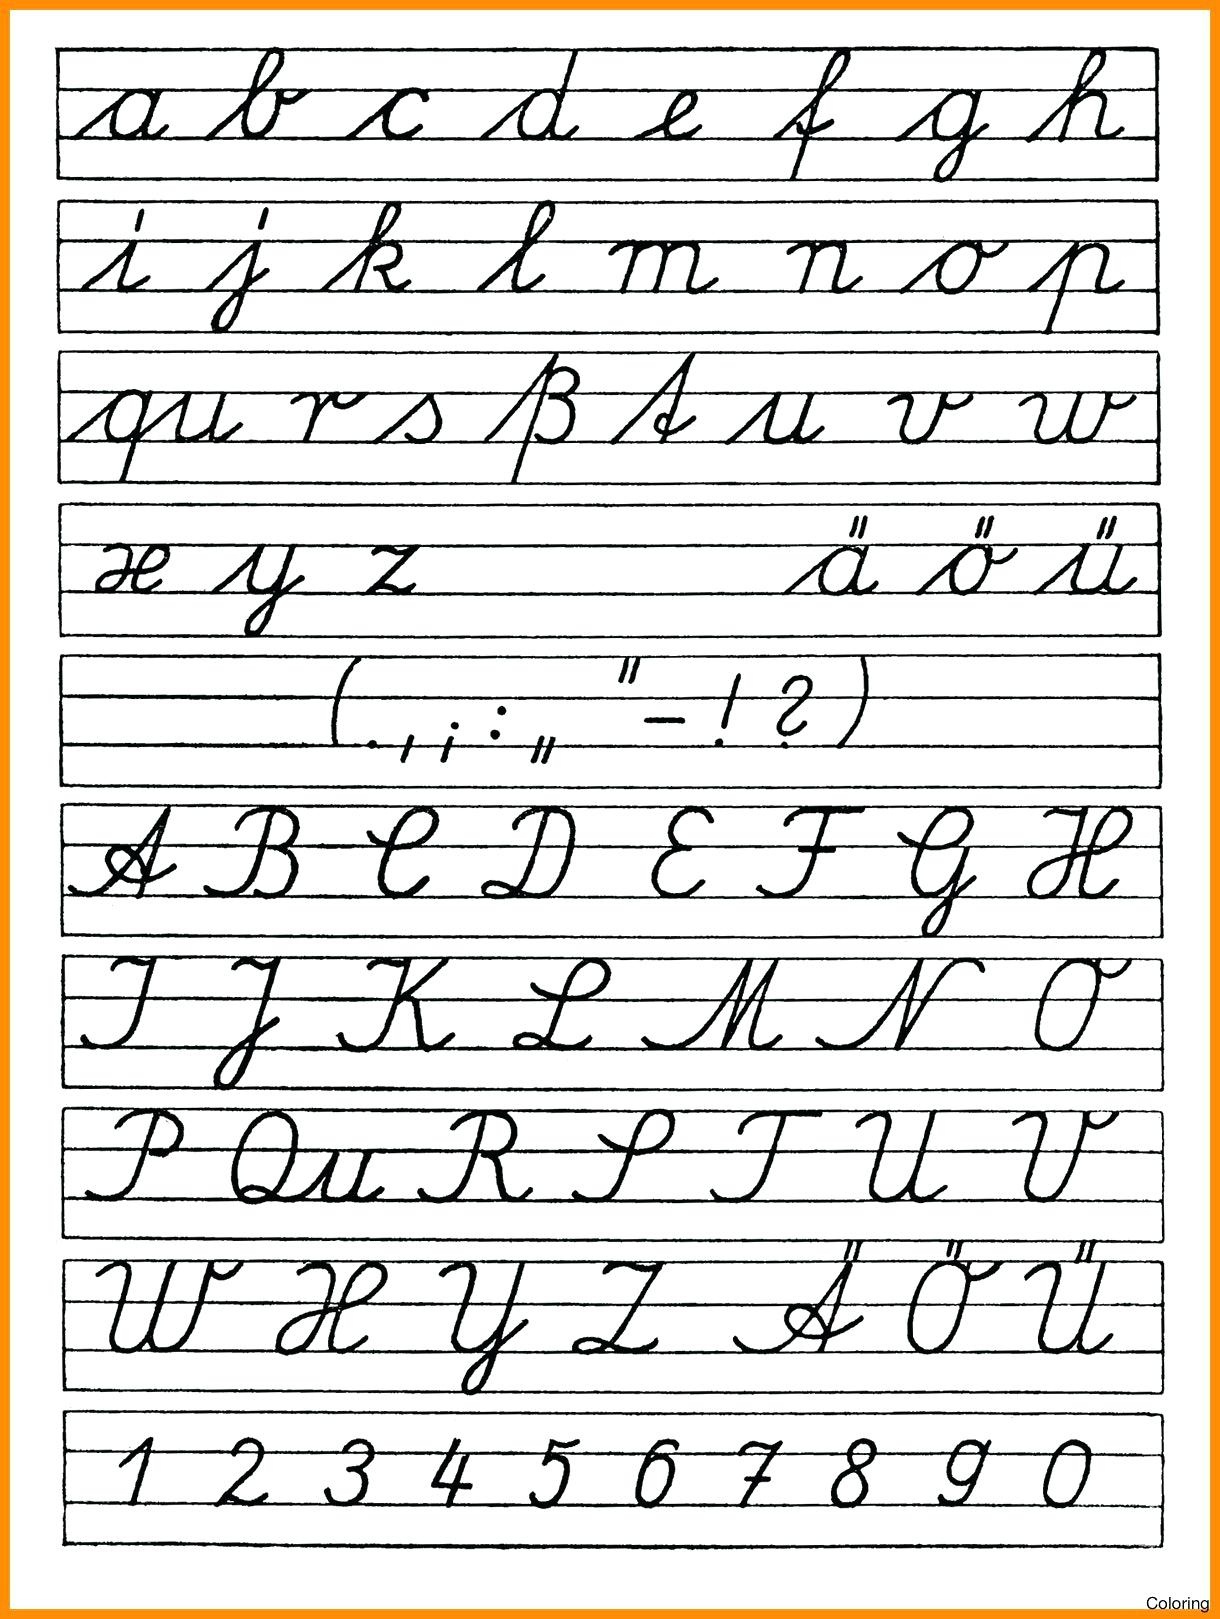 a b c d e f g h
i j k l m n o p
qu r s ß t u v w
x y z ä ö ü
( . , ; : „ " – ! ? )
A B C D E F G H
I J K L M N O
P Qu R S T U V
W X Y Z Ä Ö Ü
1 2 3 4 5 6 7 8 9 0
Coloring